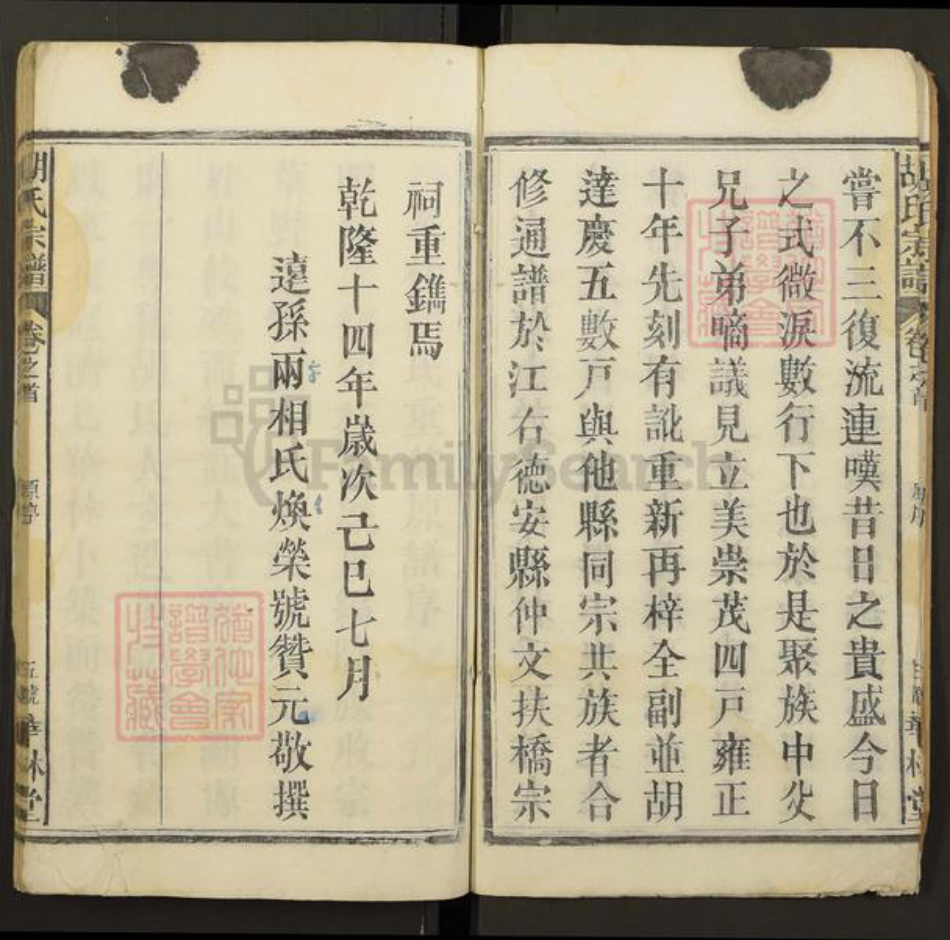 胡氏宗譜
卷之首
原序
華林堂
嘗不三復流連嘆昔日之貴盛今日
之式微淚數行下也於是聚族中父
兄子弟嘀議見立美崇茂四戸雍正
十年先刻有訛重新再梓全副並胡
達慶五數戸與他縣同宗共族者合
修通譜於江右德安縣仲文扶橋宗
祠重鐫焉
乾隆十四年歲次己巳七月
遠孫兩相氏煥榮號贊元敬撰
胡氏宗譜
卷之首
原序
五號
華林堂
FamilySearch